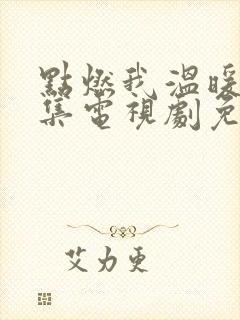 點燃我溫暖
集電視劇免
艾力更